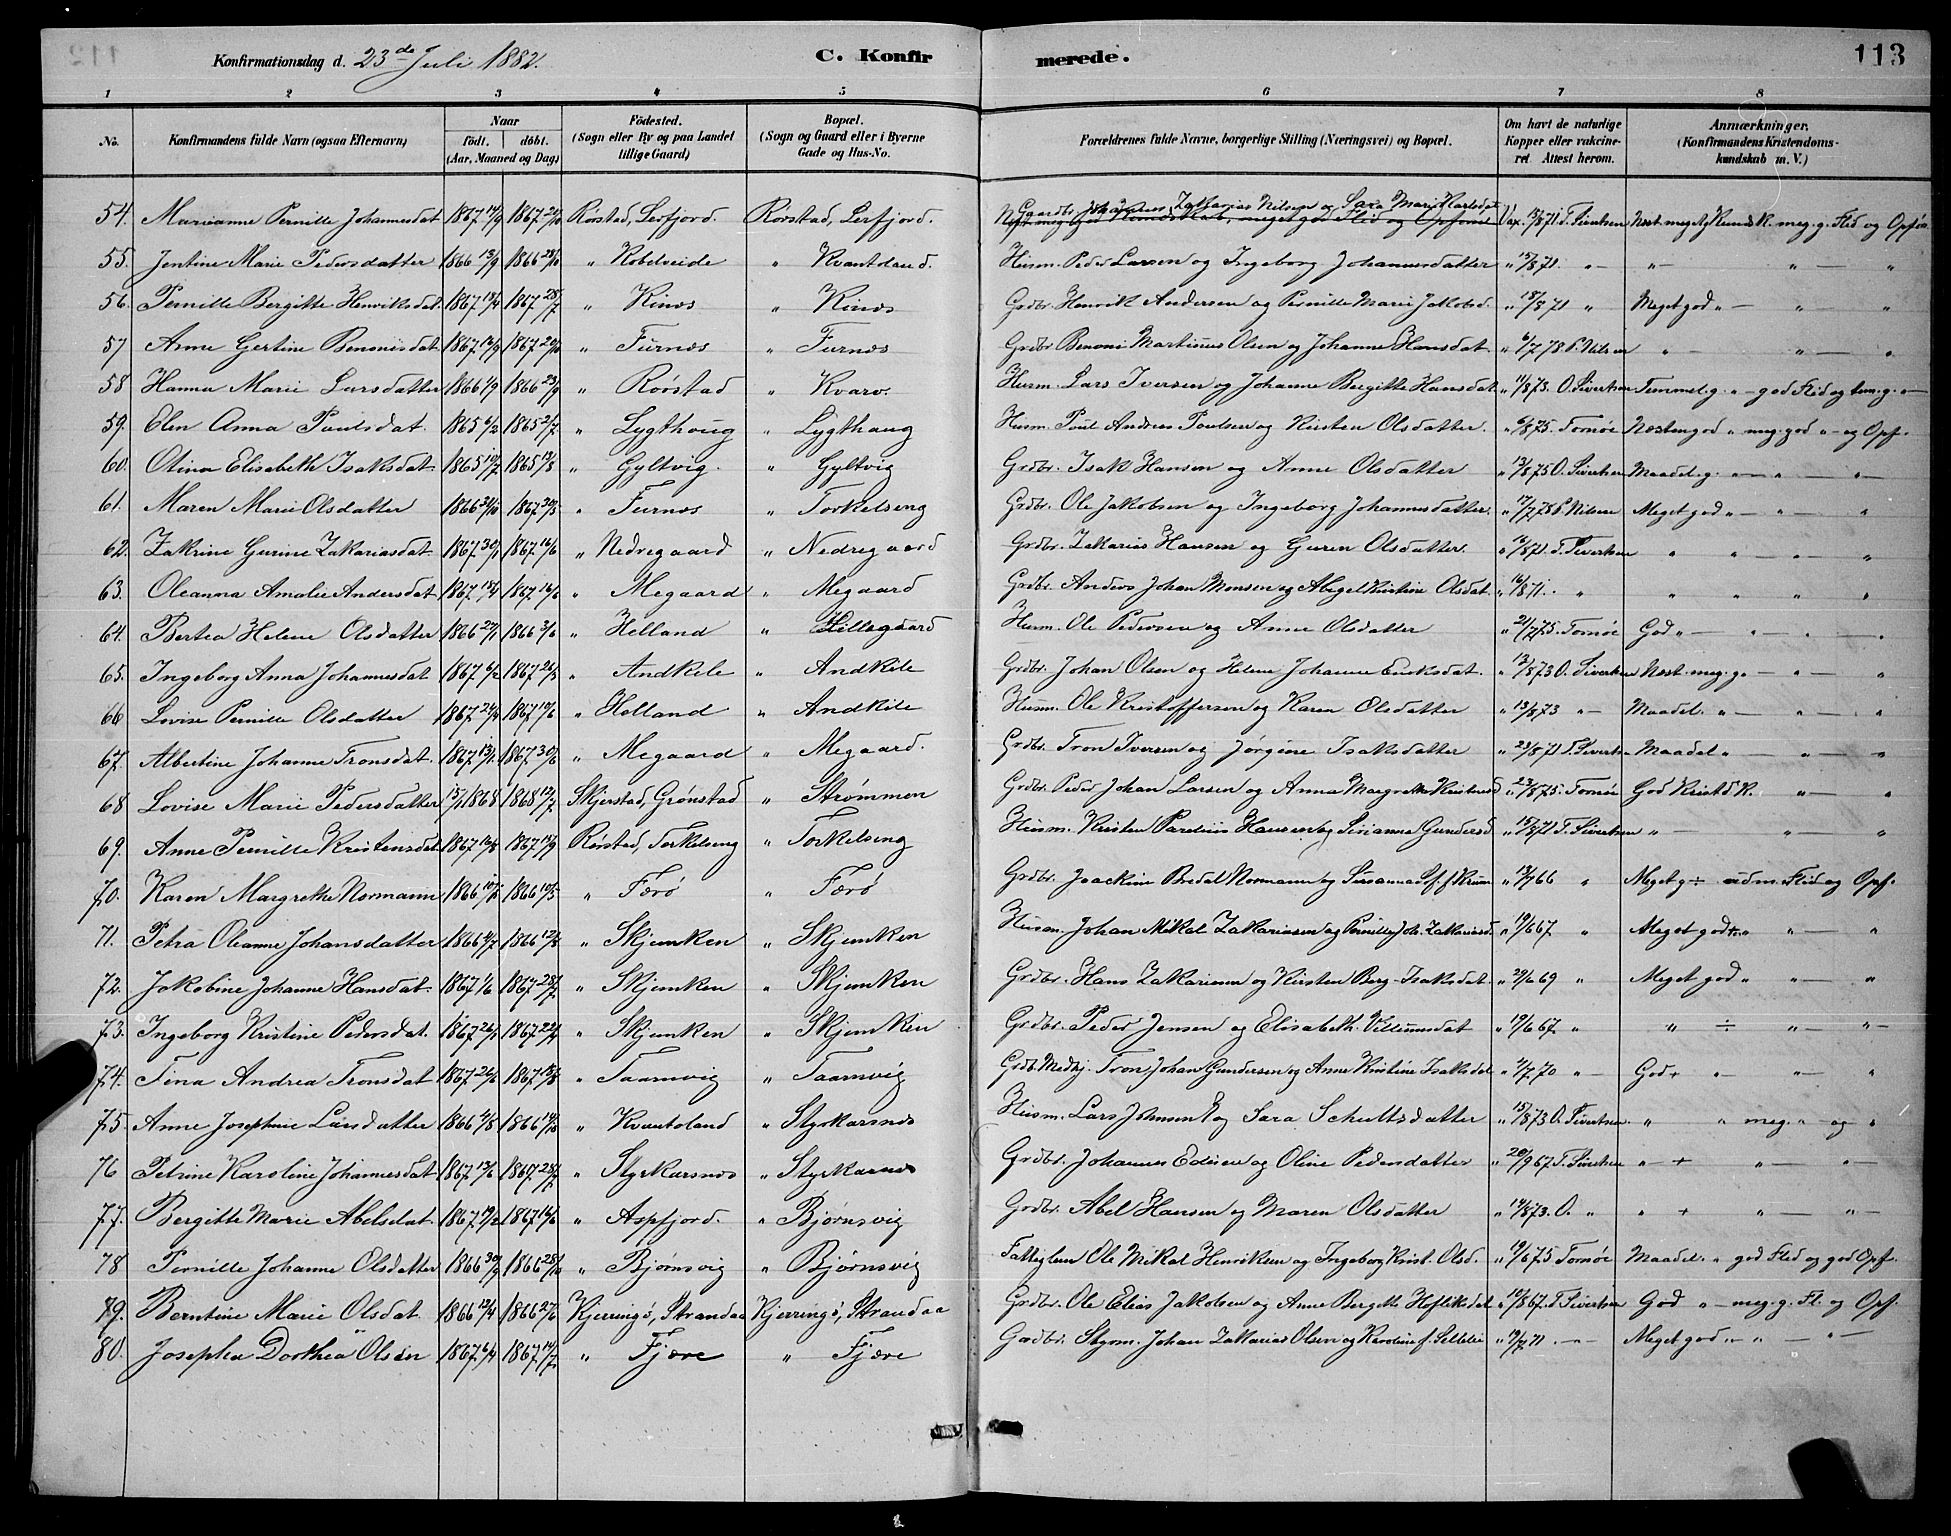 112
Konfirmationsdag d. 23de Juli 1882.
C. Konfirmerede.
113
1 2 3 4 5 6 7 8
No.
Konfirmandens fulde Navn (ogsaa Efternavn)
Naar
födt. döbt.
(Aar, Maaned og Dag)
Födested.
(Sogn eller By og paa Landet tillige Gaard)
Bopæl.
(Sogn og Gaard eller i Byerne Gade og Hus-No.
Forældrenes fulde Navne, borgerlige Stilling (Næringsvei) og Bopæl.
Om havt de naturlige Kopper eller vakcineret. Attest herom.
Anmærkninger.
(Konfirmandens Kristendomskundskab m. V.)
54. Marianne Pernille Johannesdat 1867 1867 Rørstad, Lerfjord. Rørstad, Lerfjord. Gaardbr. Johannes Zakarias Nilsen og Sara Marie Karlsdat Vax. 15/8 71. T. Sivertsen Næst. meget g Kundsk. meg. g. Flid og Opfør.
55. Jentine Marie Pedersdatter 1866 13/9 1866 28/10 " Kobelveide " Kvantoland. Husm. Peder Larsen og Ingeborg Johannesdatter " 13/8 71. " — " — " — "
56. Pernille Bergitte Henriksdat 1867 18/4 1867 28/7 " Kines " Kines Grdbr. Henrik Andersen og Pernille Marie Jakobsd. " 18/8 71 " Meget god " — " "
57 Anne Gertine Benoniisdat 1867 12/9 1867 20/10 " Furnes " Furnes Grdbr Benoni Martinus Olsen og Johanne Hansdat. " 6/7 78 P. Nilsen " — " — "
58 Hanna Marie Larsdatter 1866 1/9 1866 23/9 " Rørstad " Kvarv. Husm. Lars Iversen og Johanne Bergitte Hansdat " 11/8 73. O. Sivertsen Temmel. g. " — god Flid og tem. g. —
59. Elen Anna Paulsdat. 1865 6/2 1865 2/7 " Lygthaug " Lygthaug Husm. Paul Andreas Paulsen og Kirsten Olsdatter. " 6/8 75. Tornøe Næsten god " meg. god " — og Opf.
60. Olina Elisabeth Isaksdat. 1865 10/7 1865 13/8 " Gyltvig. " Gyltvig Grdbr. Isak Hansen og Anne Olsdatter " 13/8 75 O. Sivertsen Maadel. g. " — " — " —
61. Maren Marie Olsdatter 1866 1867 20/3 " Furnes " Torkelseng Grdbr. Ole Jakobsen og Ingeborg Johannesdatter. " 17/7 78 P. Nilsen Meget god " — " — "
62. Zakrine Gurine Zakariasdat 1867 30/1 1867 16/6 " Nedregaard " Nedregaard Grdbr. Zakarias Hansen og Guren Olsdatter. " 16/8 71. T. Sivertsen " " — "
63. Oleanna Amalie Andersdat 1867 18/4 1867 16/6 " Megaard " Megaard Grdbr. Anders Johan Monsen og Abigel Kristine Olsdat. " 16/8 71. " " " " "
64. Bertea Helene Olsdatter 1866 27/1 1866 3/6 " Helland " Hillegaard Husm. Ole Pedersen og Anne Olsdatter " 21/7 75. Tornøe God " — " — "
65. Ingeborg Anna Johannesdat 1867 6/2 1867 26/3 " Andkile " Andkile Grdbr. Johan Olsen og Helene Johanne Eriksdat. " 12/8 73 O. Sivertsen Næst. meg. g. — " — "
66 Lovise Pernille Olsdatter 1867 24/4 1867 10/6 " Holland " Andkile Husm. Ole Kristoffersen og Karen Olsdatter " 13/8 73 " — Maadel. " — " — "
67. Albertine Johanne Tronsdat. 1867 13/1 1867 30/6 " Megaard " Megaard. Grdbr. Tron Iversen og Jørgine Isaksdatter " 23/8 71 T. Sivertsen Maadel " — " — "
68 Lovise Marie Pedersdatter 15/1 1868 1868 12/7 Skjerstad, Grønstad " Strømmen Grdbr. Peder Johan Larsen og Anna Margrethe Kristensd " 23/8 75. Tornøe God Kristd. K. " — "
69. Anne Pernille Kristensdat 1867 1867 Rørstad, Torkelseng " Torkelseng Husm. Kristen Pareliis Hansen og Sirianna Gundersd " 15/8 71 T. Sivertsen " — " — "
70. Karen Margrethe Normann 1866 1866 10/5 " Færø " Færø Grdbr. Joackim Bredal Normann og Susanna " 13/7 66 " Meget g ÷ udm. Flid og Opf.
71. Petra Oleanne Johansdatter 1866 4/7 1866 12/8 " Skjemken " Skjemken Husm. Johan Mikal Zakariassen og Pernille Joh. Zakariasd. " 19/6 67 " Meget god + " " "
72. Jakobine Johanne Hansdat. 1867 1/6 1867 28/7 " Skjemken " Skjemken Grdbr. Hans Zakariasen og Kirsten Berg. Isaksdat " 29/6 69 " Meget god " " — "
73. Ingeborg Kristine Pedersdat. 1867 26/1 1867 22/4 " Skjemken " Skjemken Grdbr. Peder Jensen og Elisabeth Villumsdat " 19/6 67 " " ÷ " — " —
74. Tina Andrea Tronsdat 1867 26/6 1867 18/8 " Taarnvig " Taarnvig Grdb. Medhj. Tron Johan Gundersen og Anne Kristine Isaksdat " 4/7 70 " — God + " — " — "
75. Anne Josephine Larsdatter 1866 4/8 1866 14/10 " Kvantoland " Styrkarsnes Husm. Lars Johnsen og Sara Schultsdatter " 15/8 73 O. Sivertsen. " " meg. " — og "
76 Petrine Karoline Johannesdat 1867 13/6 1867 28/7 " Styrkarsnes " Styrkarsnes Grdbr. Johannes Edisen og Oline Pedersdatter " 20/9 67. T. Sivertsen " — + " — " —
77. Bergitte Marie Abelsdat. 1867 19/2 1867 16/6 " Aspfjord. " Bjørnsvig Grdbr. Abel Hansen og Maren Olsdatter " 14/8 73. O. " " + " — " —
78 Pernille Johanne Olsdatter 1866 30/9 1866 28/10 " Bjørnsvig " Bjørnsvig Fattiglem Ole Mikal Henriksen og Ingeborg Krist. Olsd. " 19/8 75 Tornøe Maadel. " god Flid og god Opf.
79. Berntine Marie Olsdat. 1866 12/4 1866 27/6 Kjerringø, Strandaa Kjerringø, Strandaa Grdbr. Ole Elias Jakobsen og Anne Bergitte " 10/8 67. T. Sivertsen God " — meg. g. Fl. og Opf.
80. Josepha Dorthea Olsen 1867 6/4 1867 14/7 " Fjære " Fjære Gadbr. Skysm. Johan Zakarias Olsen og Karoline " 19/7 71 " — Meget god " — " — " —